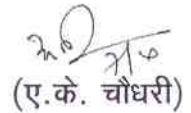 (ए.के. चौधरी)